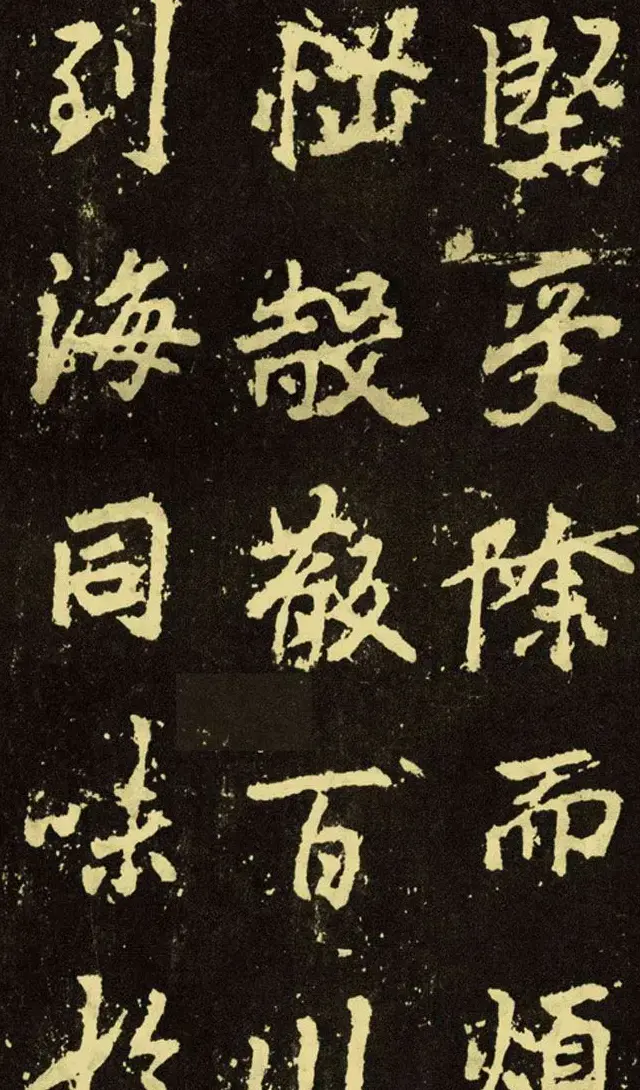 堅受除而煩
惱殼散百川
到海同味於